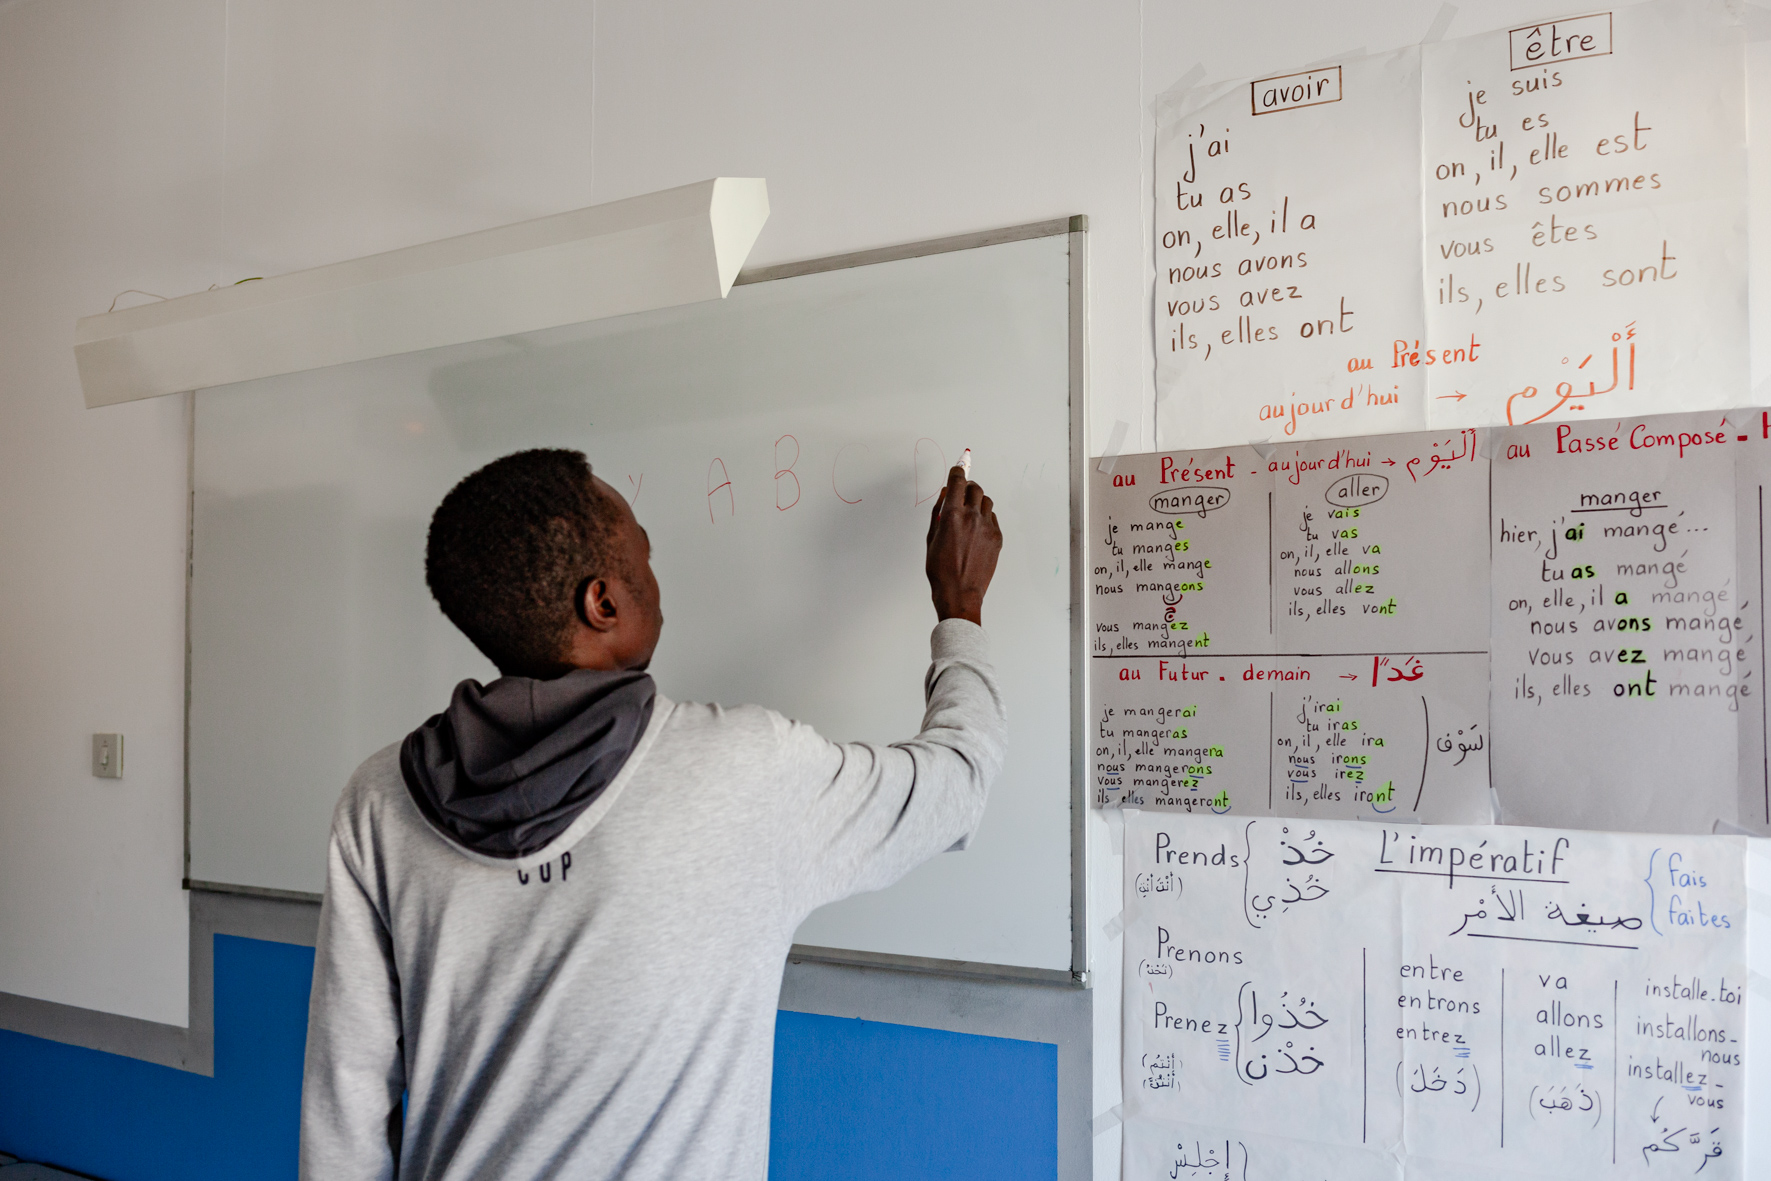 A B C D
CUP
avoir
j'ai
tu as
on, elle, il a
nous avons
vous avez
ils, elles ont
être
je suis
tu es
on, il, elle est
nous sommes
vous êtes
ils, elles sont
au Présent
aujourd'hui → أَلْيَوْم
au Présent - aujourd'hui → أَلْيَوْم
manger
je mange
tu manges
on, il, elle mange
nous mangeons
vous mangez
ils, elles mangent
aller
je vais
tu vas
on, il, elle va
nous allons
vous allez
ils, elles vont
au Futur. demain → غَدًا
je mangerai
tu mangeras
on, il, elle mangera
nous mangerons
vous mangerez
ils elles mangeront
j'irai
tu iras
on, il, elle ira
nous irons
vous irez
ils, elles iront
سَوْف
au Passé Composé - H
manger
hier, j'ai mangé...
tu as mangé
on, elle, il a mangé
nous avons mangé
vous avez mangé
ils, elles ont mangé
L'impératif
صيغة الأمْر
fais
faites
Prends
خُذْ
خُذِي
Prenons
Prenez
خُذُوا
خذْن
entre
entrons
entrez
(دَخَلَ)
va
allons
allez
(ذَهَبَ)
installe-toi
installons-
nous
installez-
vous
إجْلِسْ